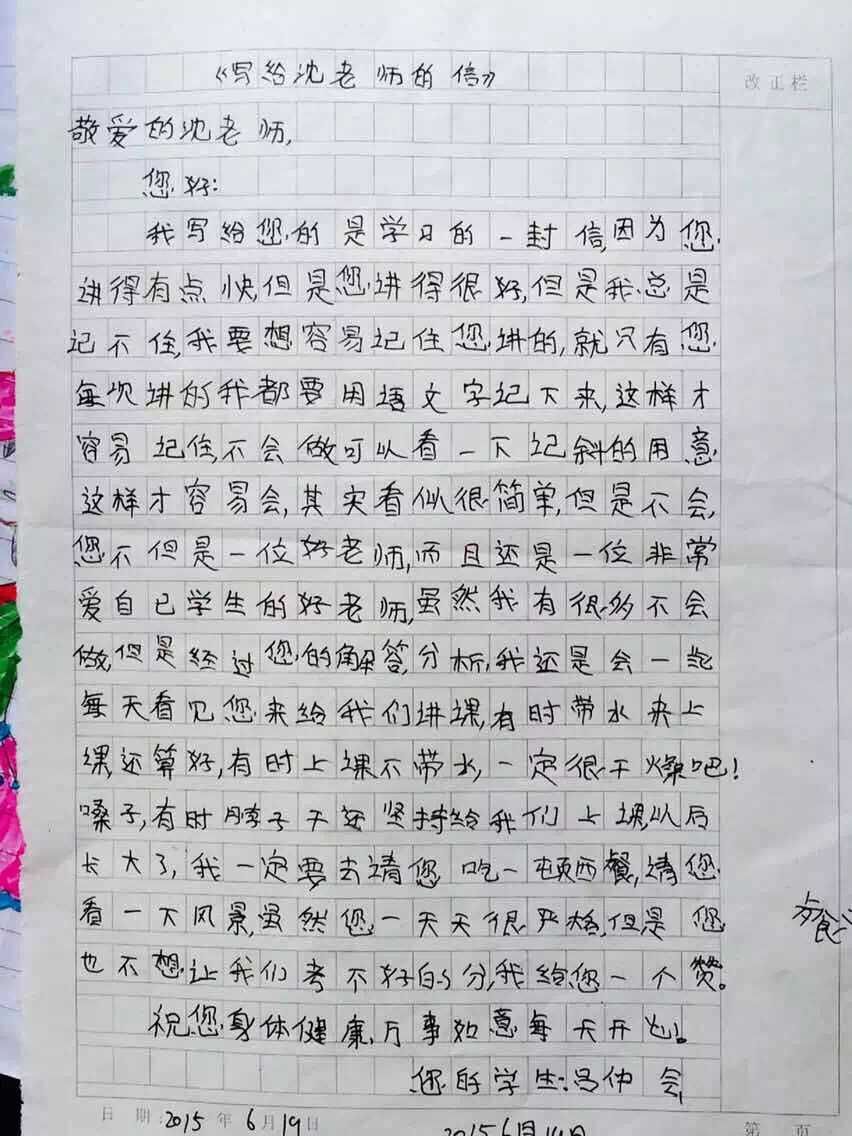 《写给沈老师的信》
改正栏
敬爱的沈老师,
您好:
我写给您的是学习的一封信,因为您
讲得有点快,但是您讲得很好,但是我总是
记不住,我要想容易记住您讲的,就只有您
每次讲的我都要用语文字记下来,这样才
容易记住,不会做可以看一下记斜的用意
这样才容易会,其实看似很简单,但是不会,
您不但是一位好老师,而且还是一位非常
爱自己学生的好老师,虽然我有很多不会
做,但是经过您的解答,分析,我还是会一些
每天看见您来给我们讲课,有时带水来上
课,还算好,有时上课不带水,一定很干燥吧!
嗓子,有时脖子干还坚持给我们上课,以后
长大了,我一定要去请您吃一顿西餐,请您
看一下风景,虽然您一天天很严格,但是您
也不想让我们考不好的分,我给您一个赞。
祝您,身体健康,万事如意每天开心!
您的学生:吕仲会
日期:2015年6月19日
2015 6月14日
第 页